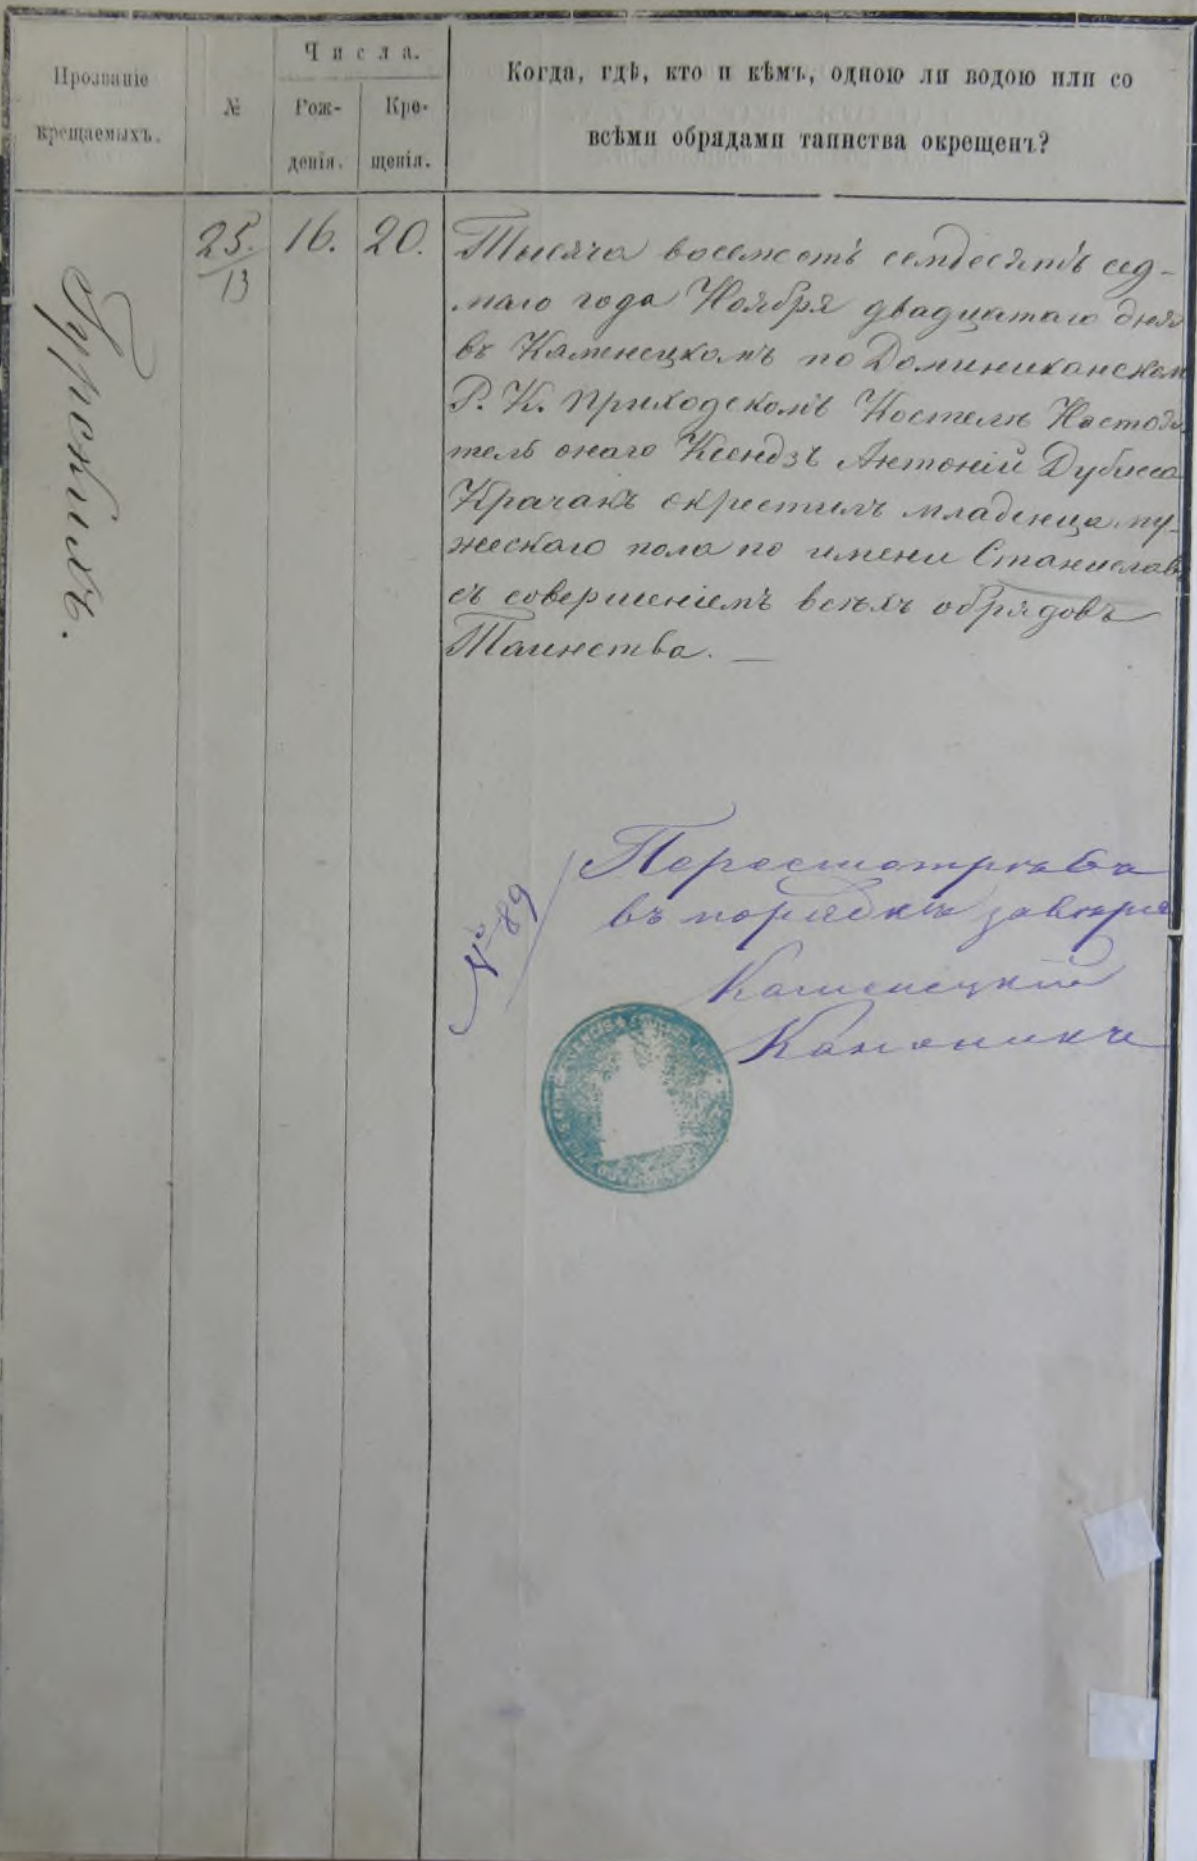 Прозваніе
крещаемыхъ.
№
Числа.
Рож-
денія.
Кре-
щенія.
Когда, гдѣ, кто и кѣмъ, одною ли водою или со
всѣми обрядами таинства окрещенъ?
25.
13
16.
20.
Тысяча восемсотъ семдесятъ сед-
маго года Ноября двадцатаго дня
въ Каменецкомъ по Доминиканском
Р. К. Приходскомъ Костелѣ Настоя
тель онаго Ксендзъ Антоній Дубисса
Крачакъ окрестилъ младенца му-
жескаго пола по имени Станислав
съ совершеніемъ всѣхъ обрядовъ
Таинства. —
№ 89
въ порядкѣ
Каменецкій
Каноникъ